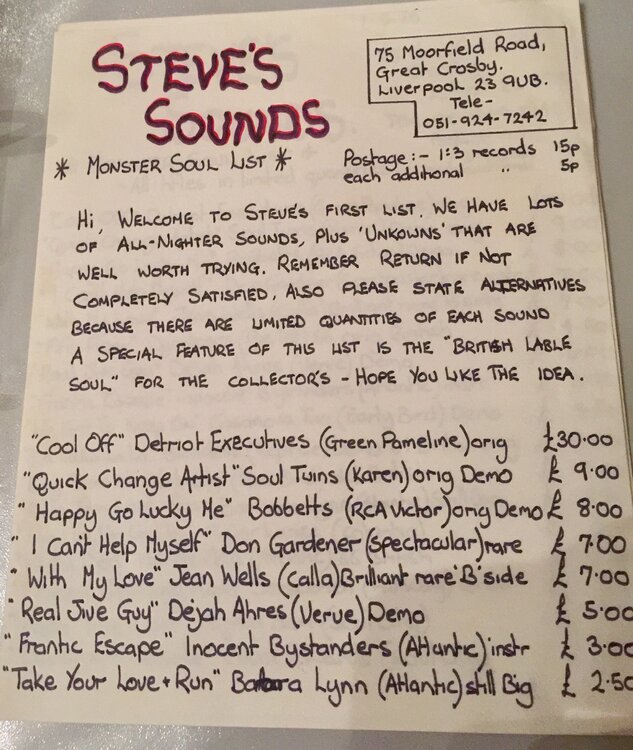 STEVE'S
SOUNDS
75 Moorfield Road,
Great Crosby.
Liverpool 23 9UB.
Tele-
051-924-7242
* MONSTER SOUL LIST *
Postage:- 1:3 records 15p
each additional " 5p
HI, WELCOME TO STEVE'S FIRST LIST. WE HAVE LOTS
OF ALL-NIGHTER SOUNDS, PLUS 'UNKOWNS' THAT ARE
WELL WORTH TRYING. REMEMBER RETURN IF NOT
COMPLETELY SATISFIED, ALSO PLEASE STATE ALTERNATIVES
BECAUSE THERE ARE LIMITED QUANTITIES OF EACH SOUND
A SPECIAL FEATURE OF THIS LIST IS THE "BRITISH LABLE
SOUL" FOR THE COLLECTOR'S - HOPE YOU LIKE THE IDEA.
"Cool Off" Detriot Executives (Green Pameline) orig £30.00
"Quick Change Artist" Soul Twins (Karen) orig Demo £ 9.00
"Happy Go Lucky Me" Bobbetts (RCA Victor) orig Demo £ 8.00
"I Can't Help Myself" Don Gardener (Spectacular) rare £ 7.00
"With My Love" Jean Wells (Calla) Brilliant rare 'B' side £ 7.00
"Real Jive Guy" Dejah Ahres (Verve) Demo £ 5.00
"Frantic Escape" Inocent Bystanders (Atlantic) instr £ 3.00
"Take Your Love + Run" Barbara Lynn (Atlantic) still Big £ 2.50